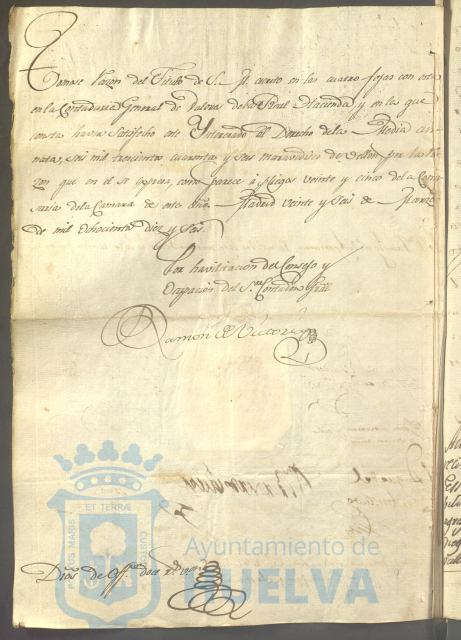 Tomose Razon del Titulo de S. M. escrito en las cuatro fojas con esta
en la Contaduria General de Valores de la Real Hacienda, y en la que
consta haver satisfecho este Interesado al Derecho de la Media an
nata, seis mil trescientos cuarenta y seis maravedises de vellon por la ra
zon que en el se expresa, como parece á pliegos veinte y cinco de la Comi
saria de la Camara de este año. Madrid veinte y seis de Marzo
de mil ochocientos diez y seis.
Por havilitacion del Consejo y
Ocupacion del Sor Contador Gral
Ramon de Victoria
PORTUS MARIS
ET TERRÆ
CUSTODIA
Ayuntamiento de
HUELVA
Dros de